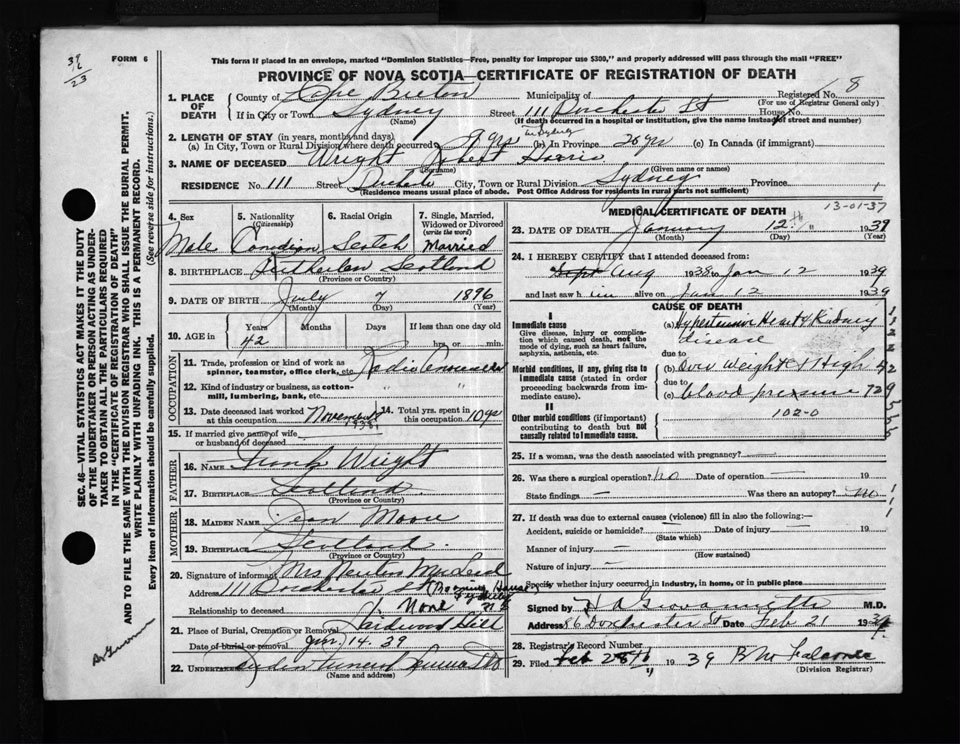 37/6/23
FORM 6
This form if placed in an envelope, marked "Dominion Statistics—Free, penalty for improper use $300," and properly addressed will pass through the mail "FREE"
PROVINCE OF NOVA SCOTIA—CERTIFICATE OF REGISTRATION OF DEATH
8
1. PLACE OF DEATH
County of Cape Breton Municipality of Registered No.
(For use of Registrar General only)
If in City or Town Sydney Street 111 Dorchester St House No.
(Name) (If death occurred in a hospital or institution, give the name instead of street and number)
2. LENGTH OF STAY (in years, months and days)
(a) In City, Town or Rural Division where death occurred 9 yrs in Sydney (b) In Province 20 yrs (c) In Canada (if immigrant)
3. NAME OF DECEASED Wright Robert Harris
(Surname) (Given name or names)
RESIDENCE No. 111 Street City, Town or Rural Division Sydney Province
(Residence means usual place of abode. Post Office Address for residents in rural parts not sufficient)
4. Sex Male
5. Nationality (Citizenship) Canadian
6. Racial Origin Scotch
7. Single, Married, Widowed or Divorced (write the word) Married
8. BIRTHPLACE Scotland
(Province or Country)
9. DATE OF BIRTH July 7 1896
(Month) (Day) (Year)
10. AGE in Years Months Days If less than one day old
42 hrs. or min.
OCCUPATION
11. Trade, profession or kind of work as spinner, teamster, office clerk, etc. Radio Announcer
12. Kind of industry or business, as cotton-mill, lumbering, bank, etc.
13. Date deceased last worked at this occupation November 1938
14. Total yrs. spent in this occupation 10 yrs
15. If married give name of wife or husband of deceased
FATHER
16. NAME Frank Wright
17. BIRTHPLACE Scotland
(Province or Country)
MOTHER
18. MAIDEN NAME Jean Moore
19. BIRTHPLACE Scotland.
(Province or Country)
20. Signature of informant Mrs MacLeod
Address 111 Dorchester St (Boarding House)
Relationship to deceased None
21. Place of Burial, Cremation or Removal Hardwood Hill
Date of burial or removal Jan. 14. 39
22. UNDERTAKER Funeral Service
(Name and address)
MEDICAL CERTIFICATE OF DEATH 13-01-37
23. DATE OF DEATH January 12th 1939
(Month) (Day) (Year)
24. I HEREBY CERTIFY that I attended deceased from:
Aug 1938 to Jan 12 1939
and last saw him alive on Jan 12 1939
CAUSE OF DEATH
I
Immediate cause
Give disease, injury or complication which caused death, not the mode of dying, such as heart failure, asphyxia, asthenia, etc.
(a) Hypertension Heart & Kidney disease
due to
Morbid conditions, if any, giving rise to immediate cause (stated in order proceeding backwards from immediate cause).
(b) Over Weight & High
due to
(c) blood pressure
II
102-0
Other morbid conditions (if important) contributing to death but not causally related to immediate cause.
25. If a woman, was the death associated with pregnancy? —
26. Was there a surgical operation? no Date of operation — 19
State findings — Was there an autopsy? no
27. If death was due to external causes (violence) fill in also the following:—
Accident, suicide or homicide? — Date of injury — 19
(State which)
Manner of injury —
(How sustained)
Nature of injury —
Specify whether injury occurred in industry, in home, or in public place
Signed by M.D.
Address 86 Dorchester St Date Feb 21 1939
28. Registrar's Record Number
29. Filed Feb 28th 1939
(Division Registrar)
SEC. 46—VITAL STATISTICS ACT MAKES IT THE DUTY OF THE UNDERTAKER OR PERSON ACTING AS UNDERTAKER TO OBTAIN ALL THE PARTICULARS REQUIRED IN THE "CERTIFICATE OF REGISTRATION OF DEATH" AND TO FILE THE SAME WITH THE DIVISION REGISTRAR WHO SHALL ISSUE THE BURIAL PERMIT.
WRITE PLAINLY WITH UNFADING INK. THIS IS A PERMANENT RECORD.
Every item of information should be carefully supplied. (See reverse side for instructions.)